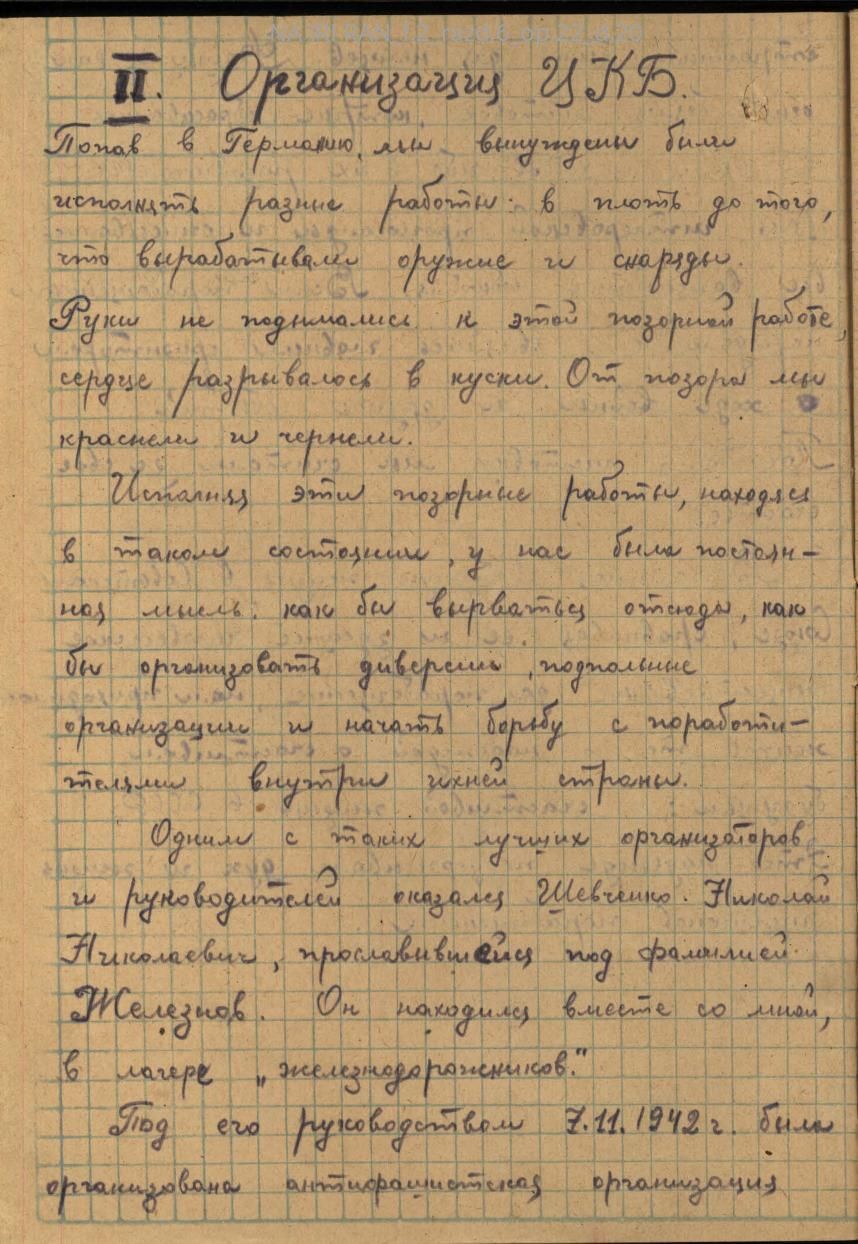 II. Организация ЦКБ.
Попав в Германию, мы вынуждены были
исполнять разные работы в плоть до того,
что вырабатывали оружие и снаряды.
Руки не подымались к этой позорной работе,
сердце разрывалось в куски. От позора мы
краснели и чернели.
Исполняя эти позорные работы, находясь
в таком состоянии, у нас была постоян-
ная мысль: как бы вырваться отсюда, как
бы организовать диверсии, подпольные
организации и начать борьбу с поработи-
телями внутри ихней страны.
Одним с таких лучших организаторов
и руководителей оказался Шевченко Николай
Николаевич, прославившейся под фамилией
Железнов. Он находился вместе со мной,
в лагере „железнодорожников."
Под его руководством 7.11.1942 г. была
организована антифашистская организация